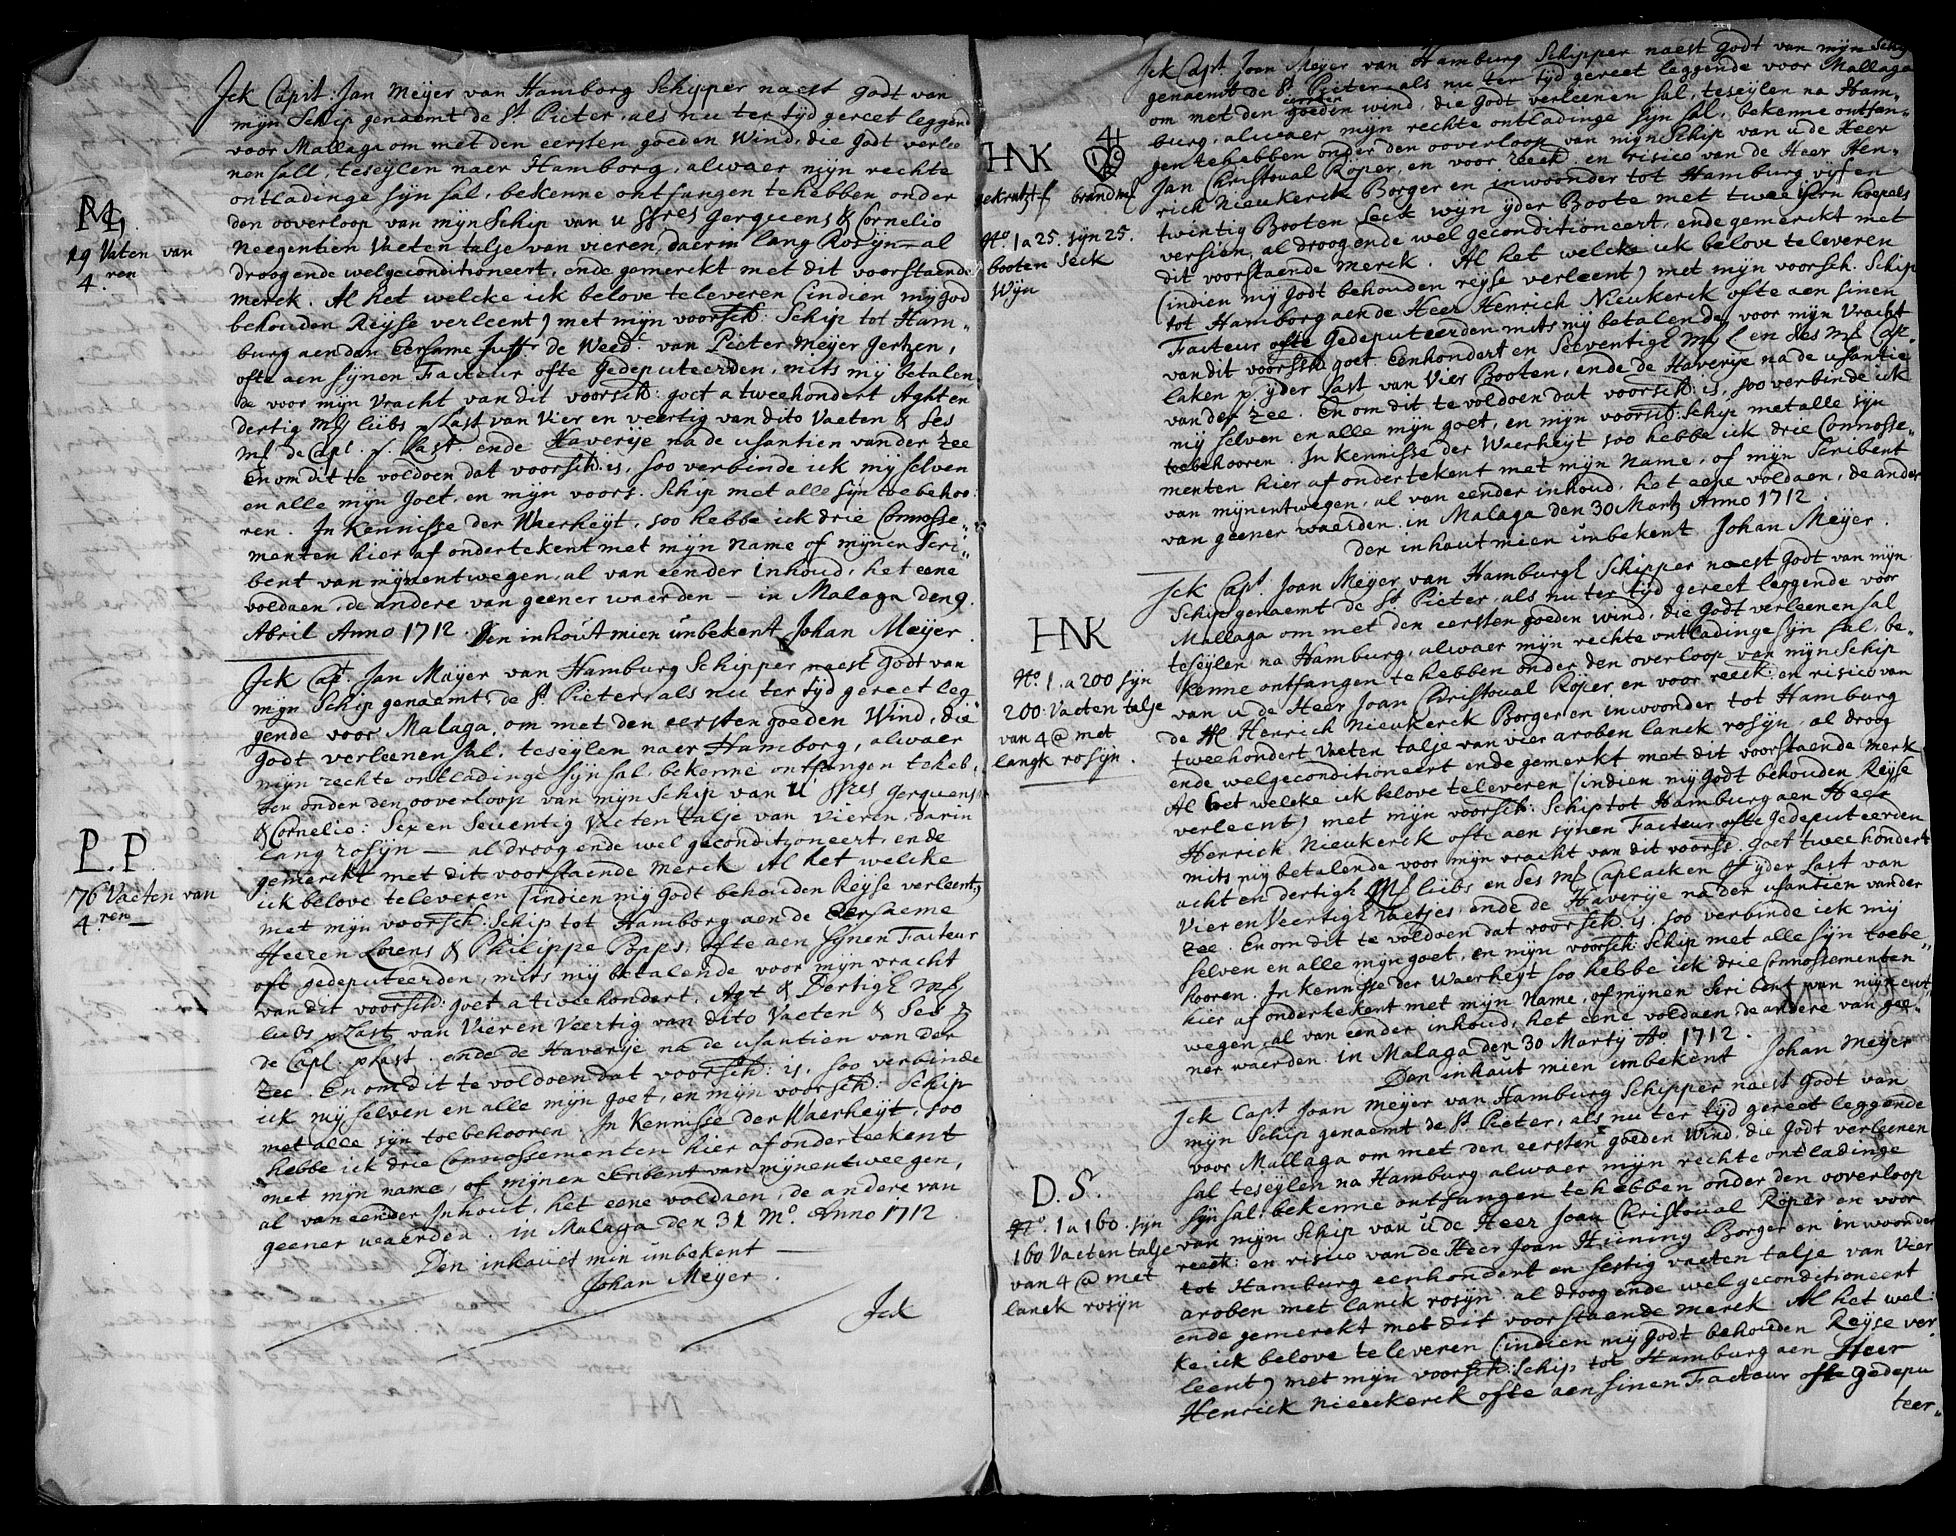 Ick Capit: Jan Meijer van Hamborg Schipper naest Godt van
mijn Schip genaemt de St Pieter, als nu ter tijd gereet leggend
voor Mallaga om met den eersten goeden Wind, die Godt verlee
nen sall, teseijlen naer Hamborg, alwaer mijn rechte
ontladinge sijn sal, bekenne ontfangen tehebben onder
den ooverloop van mijn Schip van u Ssres Gerquens & Cornelio
Neegentien Vaeten talje van vieren, daerin lang Rosijn — al
droog ende welgeconditioneert, ende gemerckt met dit voorstaende
merck. Al het welcke ick belove televeren (indien mij god
behouden Reijse verleent) met mijn voorsch: Schip tot Ham-
burg aen den Eersame Juffr de Weed: van Pieter Meijer Gertzen,
ofte aen sijnen Facteur ofte Gedeputeerden, mits mij betalen
de voor mijn Vracht van dit voorsch: goet a tweehondert Aghten
dertig mß lübs p Last van Vier en veertig van dito Vaeten & Ses
mß de Capl. p. Last. ende Haverije na de usantien vander Zee
En om dit te voldoen dat voorsch: is, soo verbinde ick mij selven
en alle mijn Goet, en mijn voors. Schip met alle sijn toebehoo
ren. In Kennisse der Waerheijt, soo hebbe ick drie Connosse-
menten hier af ondertekent met mijn Name of mijnen Scri-
bent van mijnentwegen, al van eender Inhoud, het eene
voldaen, de andere van geener waerden — in Malaga den 9.
Abril Anno 1712. Den inhout mien ünbekent Johan Meijer.
19 Vaten van
4.ren
Ick Capt. Jan Meijer van Hamburg Schipper naest Godt van
mijn Schip genaemt, de St Pieter, als nu ter tijd gereet leg
gende voor Malaga, om met den eersten goeden Wind, die
Godt verleenen sal, teseijlen naer Hamborg, alwaer
mijn rechte ontladinge sijn sal, bekenne ontfangen teheb-
ben onder den ooverloop van mijn Schip van U Ssres Gerquens
& Cornelio: Sex en Seventig Vaeten talje van Vieren, darin
lang rosijn — al droog ende wel geconditioneert, ende
gemerckt met dit voorstaende Merck Al het welcke
ick belove televeren (indien mij Godt behouden Reijse verleent)
met mijn voorsch: Schip tot Hamborg aen de Eersaeme
Heeren Lorens & Philippe Popps, ofte aen sijnen Facteur
oft gedeputeerden, mits mij betalende voor mijn vracht
van dit voorsch: goet a tweehondert, Agt & Dertig mß,
lübs p Last van Vier en Veertig van dito Vaeten & Ses ß
de Capl. p Last. ende de Haverije na de usantien van der
Zee. En om dit te voldoen dat voorsch: is, soo verbinde
ick mij selven en alle mijn goet, en mijn voorsch: Schip
met alle sijn toebehooren. In Kennisse der Waerheijt, soo
hebbe ick drie Connossementen hier af onderteekent
met mijn name, of mijnen Cribent van mijnentweegen,
al van eender Inhout, het eene voldaen, de andere van
geener waerden. in Malaga den 31 Mo. Anno 1712.
Den inhoüt mien ünbekent —
Johan Meijer.
Ick
P. P.
76 Vaeten van
4.ren —
Ick Capt. Joan Meijer van Hamburg Schipper naest Godt van mijn Schip
genaemt de St. Pieter, als nu ter tijd gereet leggende voor Mallaga
om met den eersten goeden wind, die Godt verleenen sal, teseijlen na Ham-
burg, alwaer mijn rechte ontladinge sijn sal, bekenne ontfan-
gen tehebben onder den ooverloop van mijn Schip van u de Heer
Jan Christoual Röper, en voor reeck: en risico van de Heer Hen-
rick Nieukerck Borger en inwoonder tot Hamburg vijf en
twintig Booten Seck wijn ijder Boote met twee ijsern hoepels
versien, al droog ende wel geconditioneert, ende gemerckt met
dit voorstaende Merck. Al het welcke ick belove televeren
(indien mij Godt behouden reijse verleent) met mijn voorsch. Schip
tot Hamborg aen de Heer Henrich Nieukerck ofte aen sinen
Facteur ofte Gedeputeerden mits mij betalende voor mijn Vracht
van dit voorsch goet eenhondert en Seeventig mß l en Ses mß Cap-
laken p. ijder Last van Vier Booten, ende de Haverije na de usantie
van der Zee. En om dit te voldoen dat voorsch: is, soo verbinde ick
mij selven en alle mijn goet, en mijn voorsch: Schip met alle sijn
toebehooren. In Kennisse der Waerheijt soo hebbe ick drie Connosse-
menten hier af ondertekent met mijn Name, of mijn Scribent
van mijnentwegen, al van eender inhoud, het eene voldaen, de ander
van geener waerden. in Malaga den 30 Martij Anno 1712.
den inhout mien ünbekent Johan Meijer.
HNK
gekratzt brandm
No. 1 a 25. sijn 25.
booten Seck
Wijn
Ick Capt. Joan Meijer van Hamburg Schipper naest Godt van mijn
Schip genaemt de St Pieter, als nu ter tijd gereet leggende voor
Mallaga om met den eersten goeden wind, die Godt verleenen sal
teseijlen na Hamburg, alwaer mijn rechte ontladinge sijn sal, be-
kenne ontfangen te hebben onder den overloop van mijn Schip
van u de Heer Joan Christoual Röper en voor reeck: en risico van
de Hl Henrich Nieukerck Borger en inwoonder tot Hamburg
tweehondert Vaeten talje van vier aroben lanck rosijn, al droog
ende welgeconditioneert ende gemerkt met dit voorstaende Merk
Al het welcke ick belove televeren (indien mij Godt behouden Reijse
verleent) met mijn voorsch: Schip tot Hamburg aen Heer
Henrick Nieukerck ofte aen sijnen Facteur ofte Gedeputeerden
mits mij betalende voor mijn vracht van dit voorsz. goet tweehondert
acht en dertigh mß lübs en Ses mß Caplacken p ijder Last van
Vier en Veertigh Vaetjes, ende de Haverije na der usantien vander
Zee. En om dit te voldoen dat voorsch: is, soo verbinde ick mij
selven en alle mijn goet, en mijn voorsch: Schip met alle sijn toebe-
hooren. In Kennisse der Waerheijt soo hebbe ick drie Connossementen
hier af ondertekent met mijn Name, of mijnen Scribent van mijn ent-
wegen, al van eender inhoud, het eene voldaen, de andere van gee-
ner waerden. In Malaga den 30 Martij Ao 1712.
Den inhaut mien ünbekent Johan Meijer
HNK
No. 1. a 200 sijn
200: Vaeten talje
van 4 @ met
langk rosijn.
Ick Capt Joan Meijer van Hamburg Schipper naest Godt van
mijn Schip genaemt de St. Pieter, als nu ter tijd gereet leggende
voor Mallaga om met den eersten goeden Wind, die Godt verleenen
sal teseijlen na Hamburg alwaer mijn rechte ontladinge
sijn sal, bekenne ontfangen te hebben onder den ooverloop
van mijn Schip van u de Heer Joan Christoual Röper en voor
reeck: en risico van de Heer Joan Hüning Borger en inwoonder
tot Hamburg eenhondert en sestig vaeten talje van Veer
aroben met lanck rosijn al droog ende wel geconditioneert
ende gemerckt met dit voorstaende Merck Al het wel:
ke ick belove televeren (indien mij Godt behouden Reijse ver:
leent) met mijn voorsch: Schip tot Hamburg aen Heer
Henrick Nieukerck ofte aen sinen Facteur ofte Gedepu
teer-
D. S.
No. 1 a 160. sijn
160 Vaeten talje
van 4 @ met
lanck rosijn